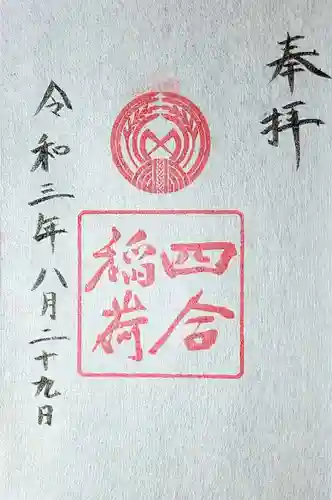 奉拝
四合
稲荷
令和三年八月二十九日